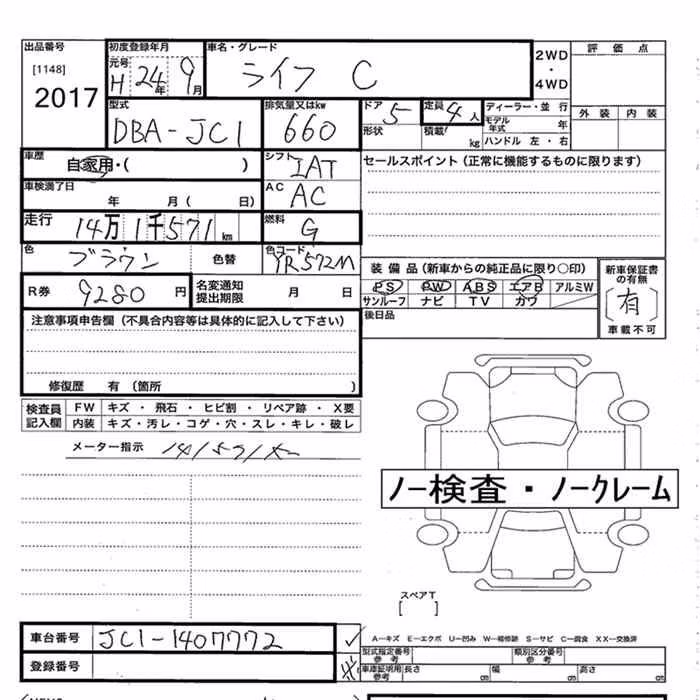 出品番号 初度登録年月 車名・グレード 2WD・4WD 評価点
[1148] 元号 H 24年 9月 ライフ C
2017 外装 内装
型式 排気量又はkw ドア 5 定員 4人 ディーラー・並行
DBA-JC1 660 形状 積載 kg モデル年式 年
ハンドル 左・右
車歴 自家用・( ) シフト IAT セールスポイント(正常に機能するものに限ります)
車検満了日 年 月( 日) AC AC
走行 14万1千571km 燃料 G
色 ブラウン 色替 色コード YR572M
装備品(新車からの純正品に限り○印) 新車保証書の有無
R券 9280円 名変通知提出期限 月 日 PS PW ABS エアB アルミW 〔有〕
サンルーフ ナビ TV カワ 車載不可
注意事項申告欄(不具合内容等は具体的に記入して下さい) 後日品
修復歴 有〔箇所 〕
検査員記入欄 FW キズ・飛石・ヒビ割・リペア跡・X要
内装 キズ・汚レ・コゲ・穴・スレ・キレ・破レ
メーター指示 141571km
ノー検査・ノークレーム
スペアT
[ ]
車台番号 JC1-1407772 A-キズ E-エクボ U-凹み W-補修跡 S-サビ C-腐食 XX-交換済
型式指定番号 参考 類別区分番号 参考
登録番号 車庫証明用 参考 長さ cm 幅 cm 高さ cm